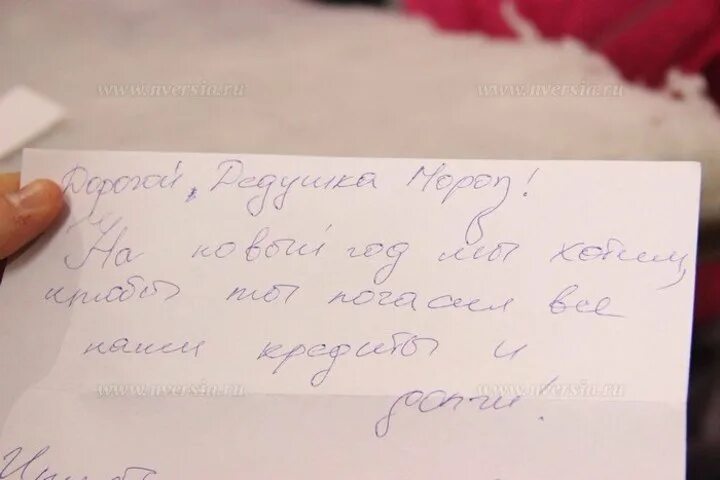 www.nversia.ru www.nversia.ru
Дорогой, Дедушка Мороз!
На новый год мы хотим,
чтобы ты погасил все
наши кредиты и
долги!
www.nversia.ru www.nversia.ru